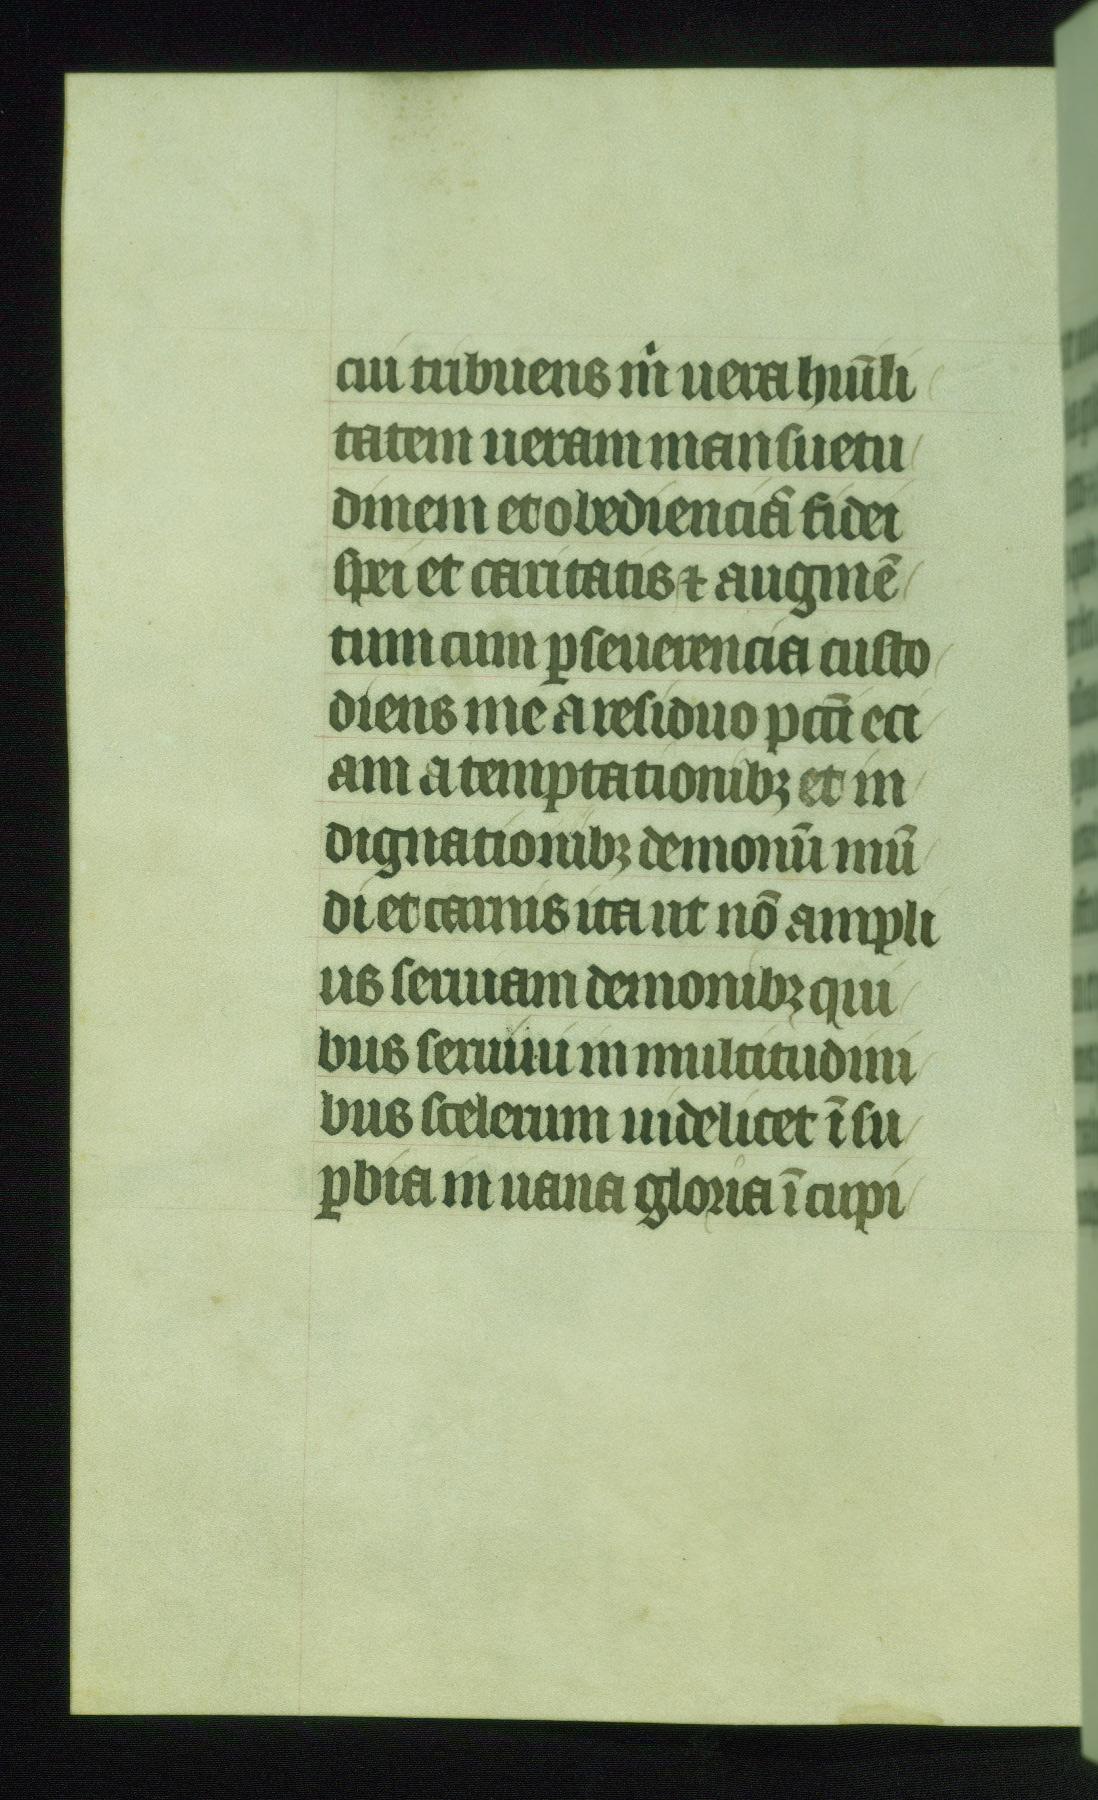 ciu tribuens mͥ uera humͫli
tatem ueram mansuetu
dinem et obedienciā fidei
spei et caritatis ⁊ augmē
tum cum ꝑseuerencia custo
diens me a residuo pctī eci
am a temptationibꝫ et in
dignationibꝫ demonū mū
di et carnis ita ut nō ampli
us seruiam demonibꝫ qui
bus seruiui in multitudini
bus scelerum uidelicet ī su
ꝑbia in uana gloria ī cupi